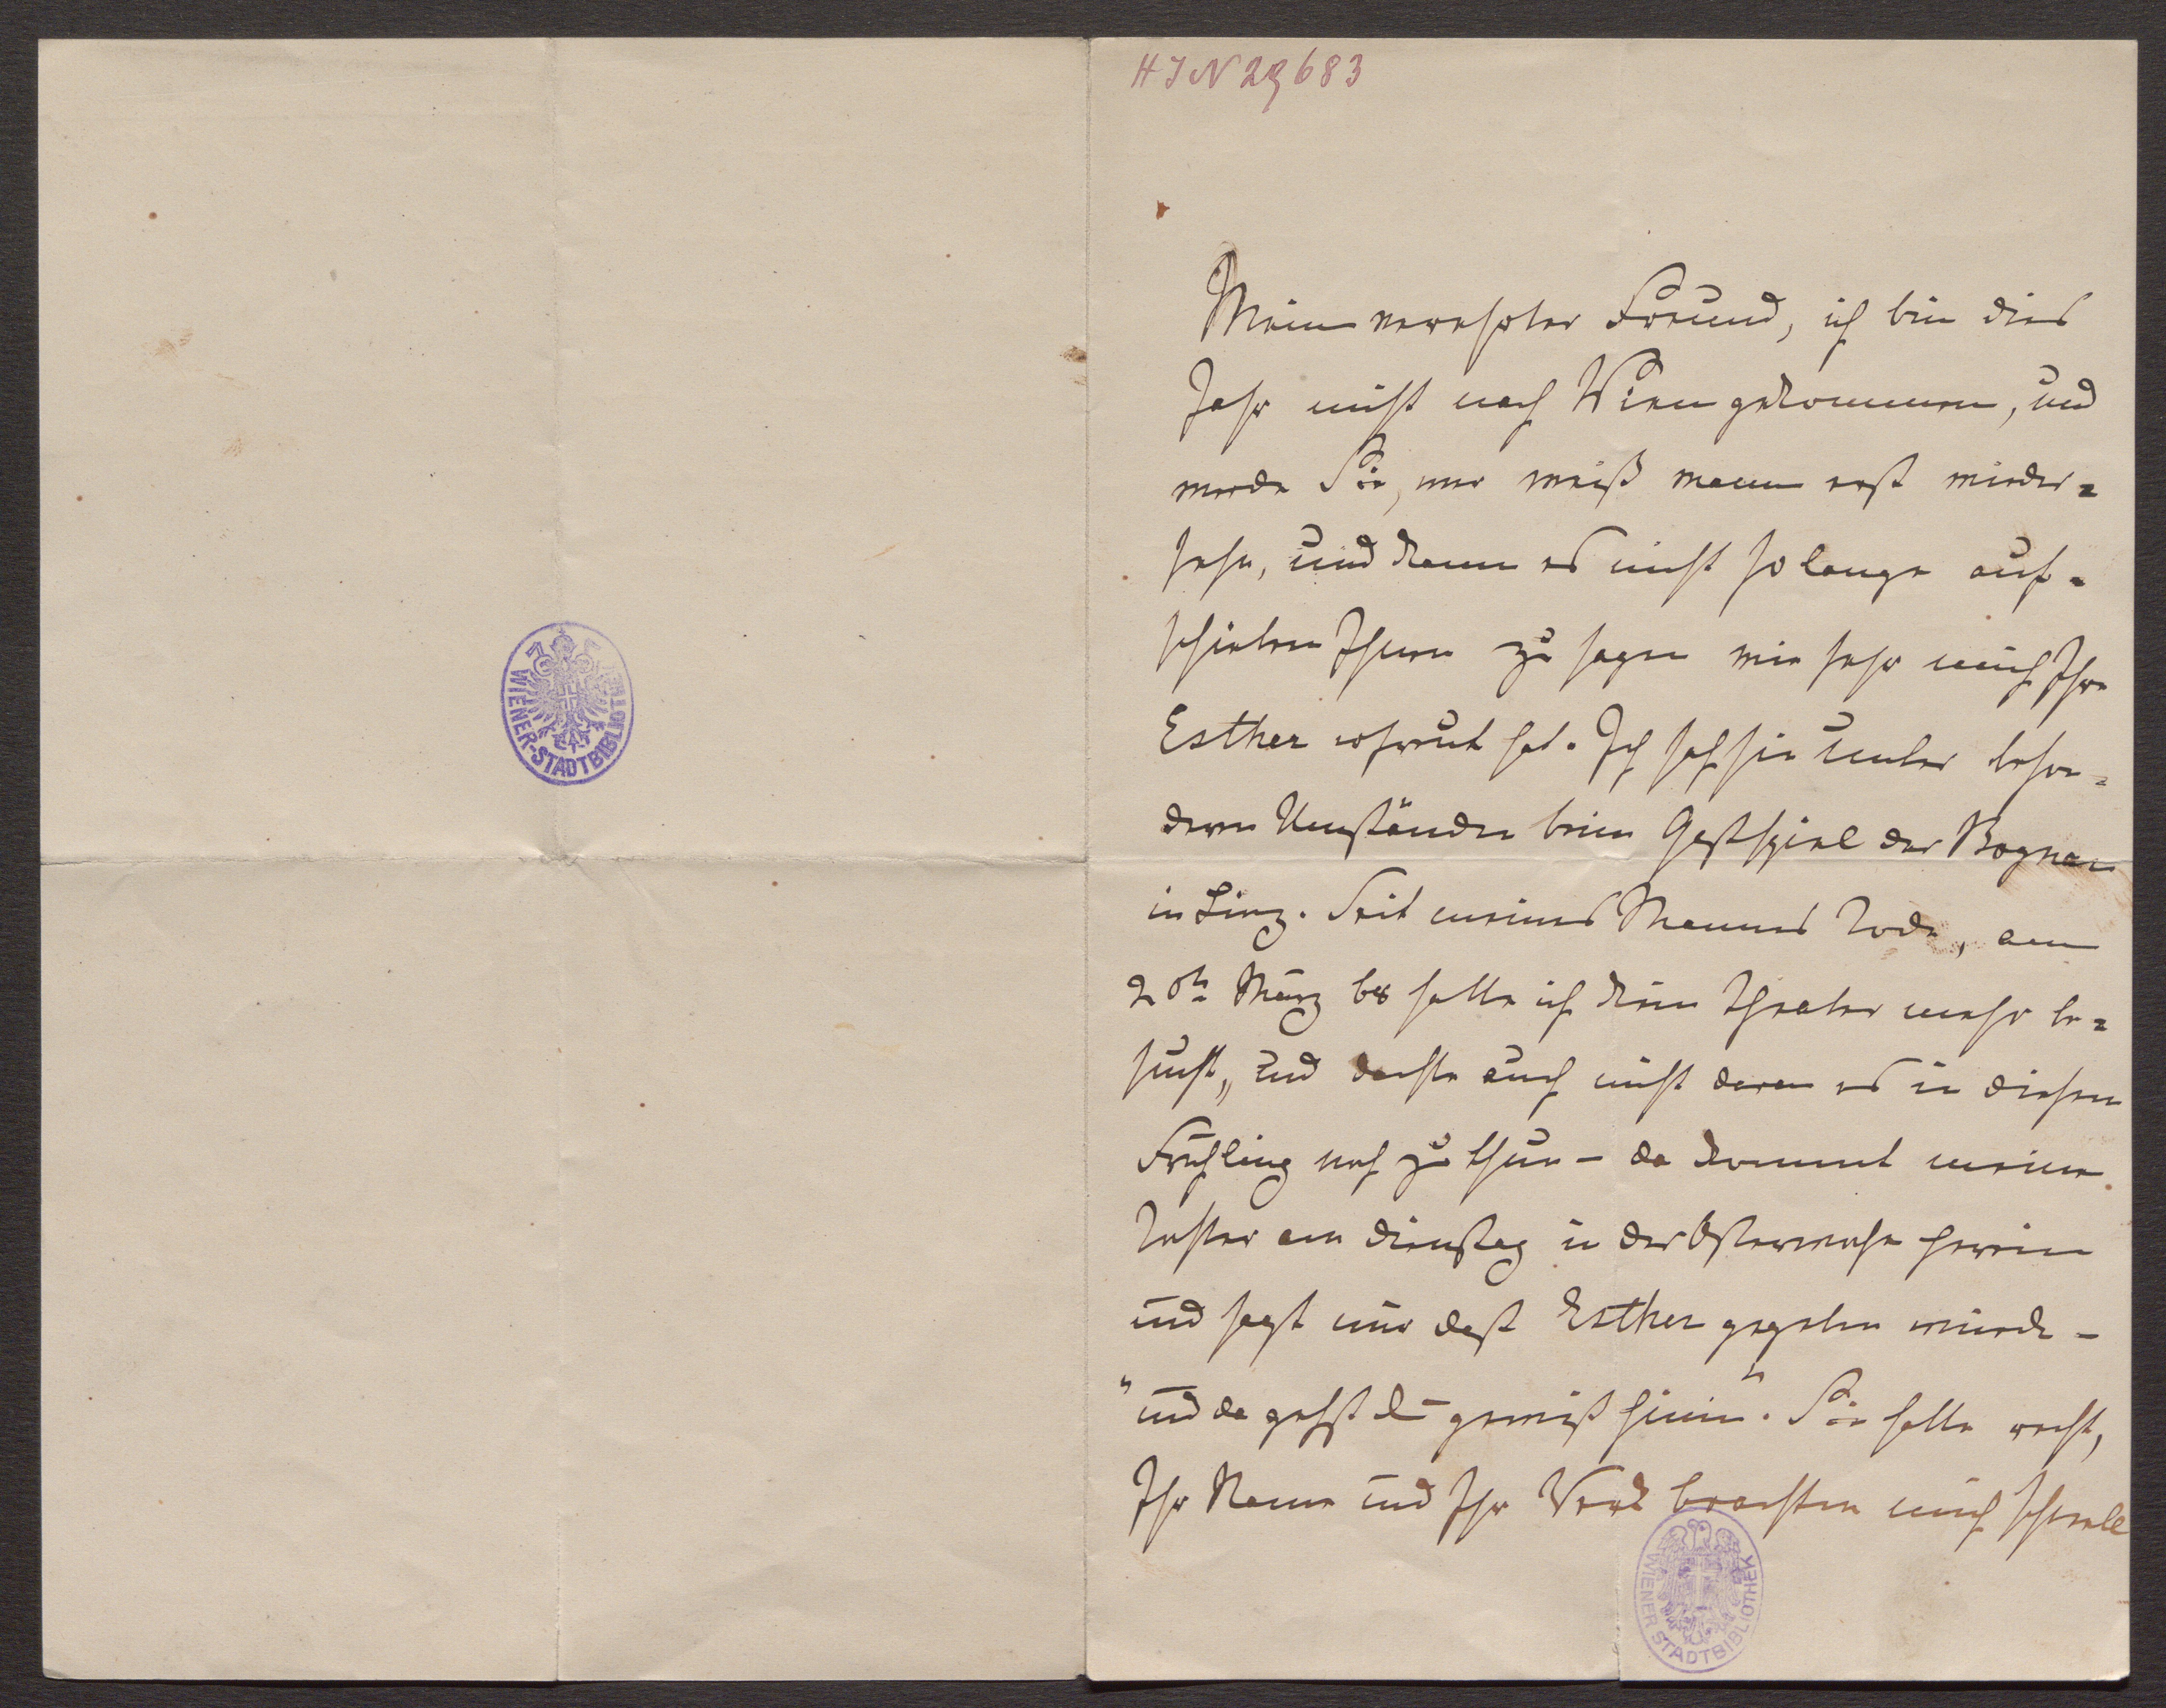 HIN 29683
Mein verehrter Freund, ich bin dies
Jahr nicht nach Wien gekommen, und
werde Sie, wer weiß wann erst wieder=
sehn, und kann es nicht so lange auf=
schieben Ihnen zu sagen wie sehr mich Ihre
Esther erfreut hat. Ich sah sie unter beson=
deren Umständen beim Gastspiel der Bognar
in Linz. Seit meines Mannes Tode, am
20t März 68 hatte ich kein Theater mehr be=
sucht, und dachte auch nicht daran es in diesem
Frühling noch zu thun – da kommt meine
Tochter am Dienstag in der Osterwoche herein
und sagt mir daß Esther gegeben würde –
"und da gehst du gewiß hinein". Sie hatte recht,
Ihr Name und Ihr Werk brachten mich schnell
WIENER-STADTBIBLIOTHEK
WIENER STADTBIBLIOTHEK